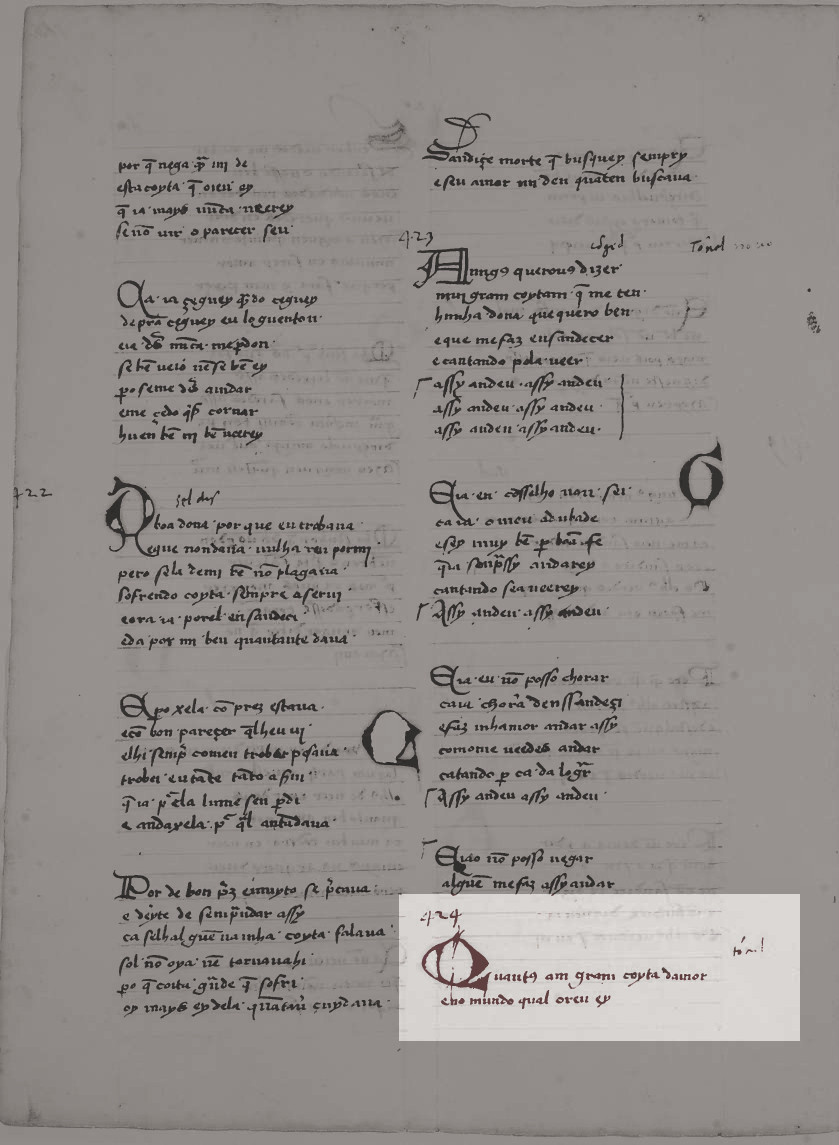 por q̄ nega q̄r mj de
esta coyta q̄ oieu ey
q̄ ia mays nūca ueerey
se nō uir o parecer seu
Ca ia çeguey q̄ndo çeguey
de prā çeguey eu loguenton
eia ds̄ nūca me perdon
se bē ueio nē se bē ey
po se me ds̄ aiudar
e me çedo q̄s̄ tornar
hu en bē mj bē ueerey
422
A boa dona por que eu trobaua
e que non daua nulha ren por mj
pero sela de mj bē nō pagaua
sofrendo coyta sempre a serui
e ora ia por el ensandeci
e da por mj ben quantante daua
E po xela cō prez estaua
e cō bon pareçer q̄ lheu ui
e lhi semp̄ comeu trobar pesaua
trobei eu tāte tāto a serui
q̄ ia por ela lume sen perdi
e anda xela por q̄l antādaua
Por de bon prez e muyto se preçaua
e deyte de sempr andar assy
ca selhalguē na mha coyta falaua
sol nō oya nē tornauahi
po q̄ coita grāde q̄ sofri
oy mays ey dela quātaui cuydaua
Sandiçe morte q̄ busquey sempr y
e seu amor mi deu quāten buscaua
423
Amigos querouos dizer
mui gram coytam q̄ me ten
hunha dona que quero ben
e que me faz ensandecer
e catando pola ueer
assy andeu assy andeu
assy andeu assy andeu
assy andeu assy andeu
E ia eu cōsselho non sei
ca ia o meu adubade
e sey muy bē per boā fe
q̄ ia semp̄ssy andarey
catando sea ueerey
Assy andeu assy andeu
E ia eu nō posso chorar
ca ia chorā denssandeçi
e faz mhamor andar assy
comome ueedes andar
catando per cada logr̄
Assy andeu assy andeu
E iao nō posso negar
alguē me faz assy andar
424
Quantos am gram coyta damor
eno mundo qual oieu ey